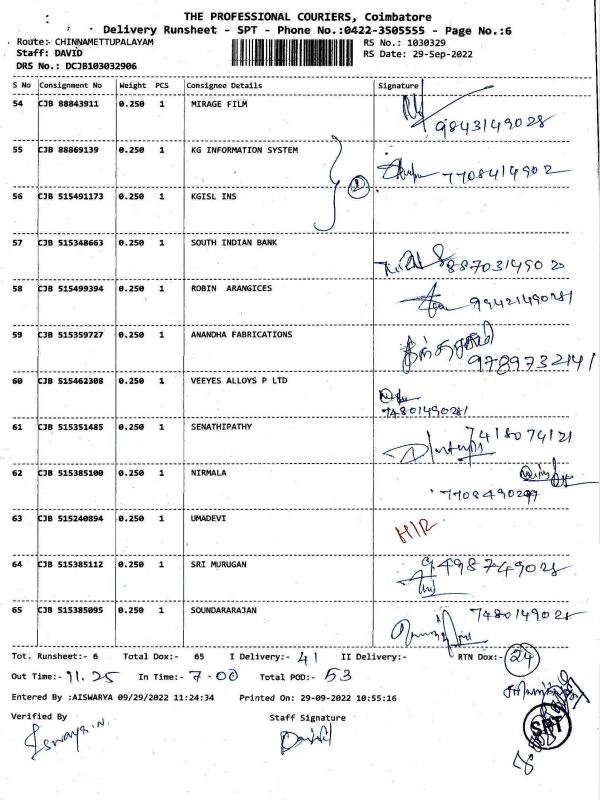 THE PROFESSIONAL COURIERS, Coimbatore
Delivery Runsheet - SPT - Phone No.:0422-3505555 - Page No.:6
Route: CHINNAMETTUPALAYAM RS No.: 1030329
Staff: DAVID RS Date: 29-Sep-2022
DRS No.: DCJB103032906
S No Consignment No Weight PCS Consignee Details Signature
54 CJB 88843911 0.250 1 MIRAGE FILM
9843149028
55 CJB 88869139 0.250 1 KG INFORMATION SYSTEM
7708414902
56 CJB 515491173 0.250 1 KGISL INS
57 CJB 515348663 0.250 1 SOUTH INDIAN BANK
58 CJB 515499394 0.250 1 ROBIN ARANGICES
59 CJB 515359727 0.250 1 ANANDHA FABRICATIONS
9789732141
60 CJB 515462308 0.250 1 VEEYES ALLOYS P LTD
61 CJB 515351485 0.250 1 SENATHIPATHY
7418074121
62 CJB 515385100 0.250 1 NIRMALA
63 CJB 515240894 0.250 1 UMADEVI
64 CJB 515385112 0.250 1 SRI MURUGAN
65 CJB 515385095 0.250 1 SOUNDARARAJAN
7480149028
Tot. Runsheet:- 6 Total Dox:- 65 I Delivery:- 41 II Delivery:- RTN Dox:- 24
Out Time:- 11.25 In Time:- 7.00 Total POD:- 53
Entered By :AISWARYA 09/29/2022 11:24:34 Printed On: 29-09-2022 10:55:16
Verified By Staff Signature
SPT